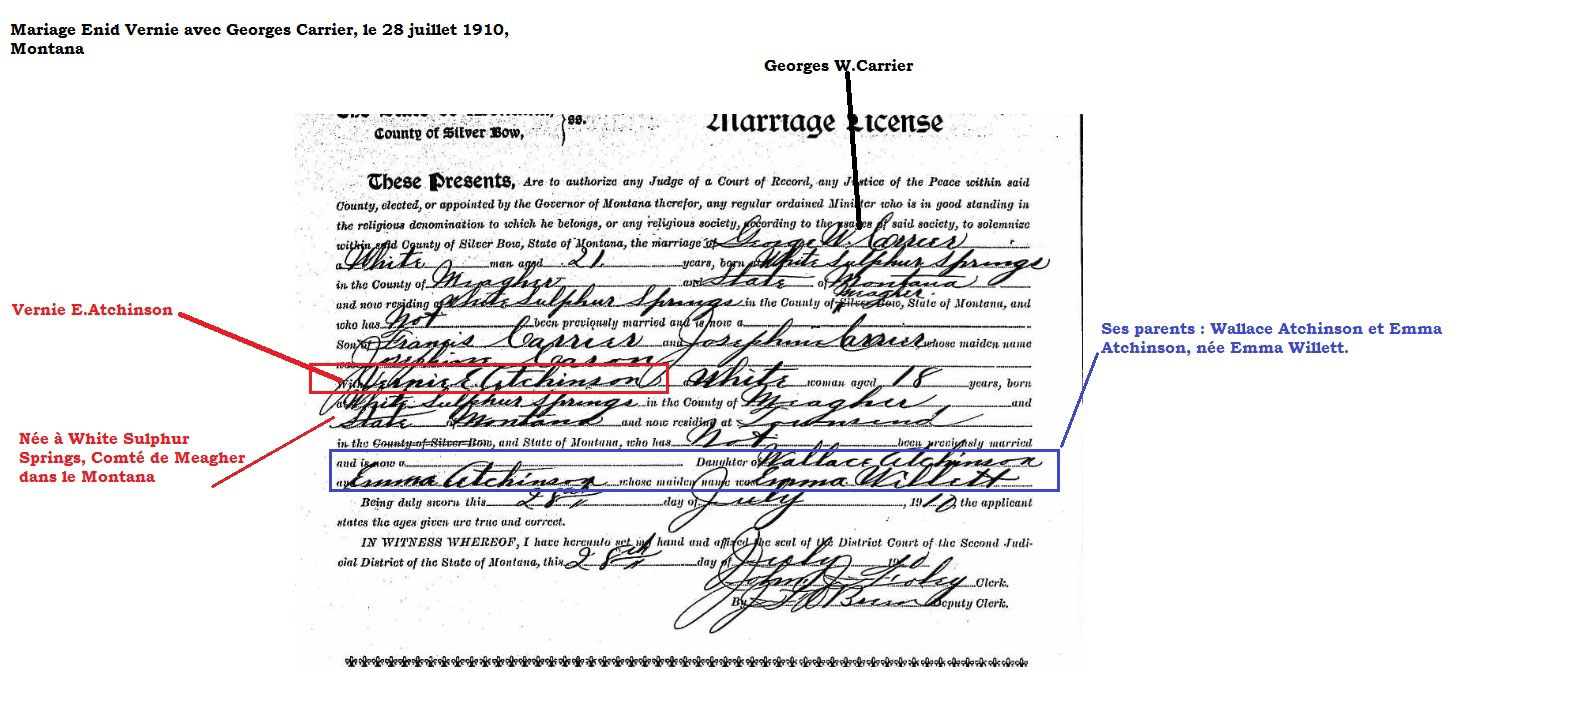 Mariage Enid Vernie avec Georges Carrier, le 28 juillet 1910,
Montana
Georges W.Carrier
County of Silver Bow,
ss.
Marriage License
These Presents, Are to authorize any Judge of a Court of Record, any Justice of the Peace within said
County, elected, or appointed by the Governor of Montana therefor, any regular ordained Minister who is in good standing in
the religious denomination to which he belongs, or any religious society, according to the usages of said society, to solemnize
within said County of Silver Bow, State of Montana, the marriage of George W. Carrier
a White man aged 21 years, born at White Sulphur Springs
in the County of Meagher and State of Montana
and now residing at White Sulphur Springs in the County of Silver Bow, Meagher, State of Montana, and
who has Not been previously married and is now a
Son of Francis Carrier and Josephine Carrier whose maiden name
was Josephine Caron
With Vernie E. Atchinson a White woman aged 18 years, born
at White Sulphur Springs in the County of Meagher and
State of Montana and now residing at Townsend
in the County of Silver Bow, and State of Montana, who has Not been previously married
and is now a Daughter of Wallace Atchinson
and Emma Atchinson whose maiden name was Emma Willett
Being duly sworn this 28th day of July, 1910, the applicant
states the ages given are true and correct.
IN WITNESS WHEREOF, I have hereunto set my hand and affixed the seal of the District Court of the Second Judi-
cial District of the State of Montana, this 28th day of July 1910
John J. Foley Clerk.
By Deputy Clerk.
Vernie E.Atchinson
Née à White Sulphur
Springs, Comté de Meagher
dans le Montana
Ses parents : Wallace Atchinson et Emma
Atchinson, née Emma Willett.